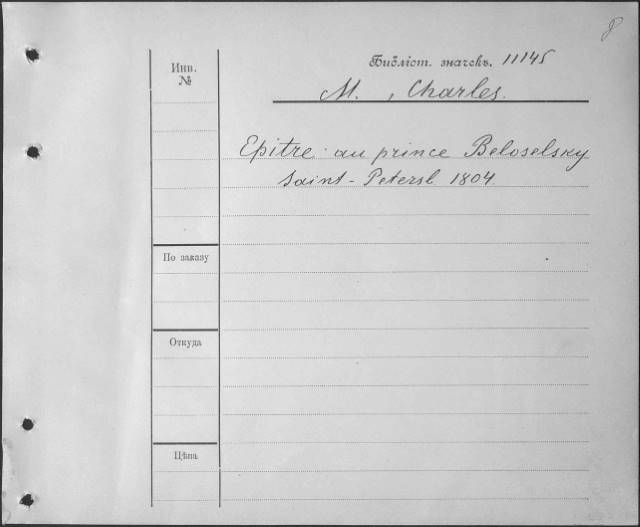 8
Инв.
№
Библіот. значекъ. 11145
M. , Charles.
Epitre au prince Beloselsky
Saint-Petersb. 1804.
По заказу
Откуда
Цѣна